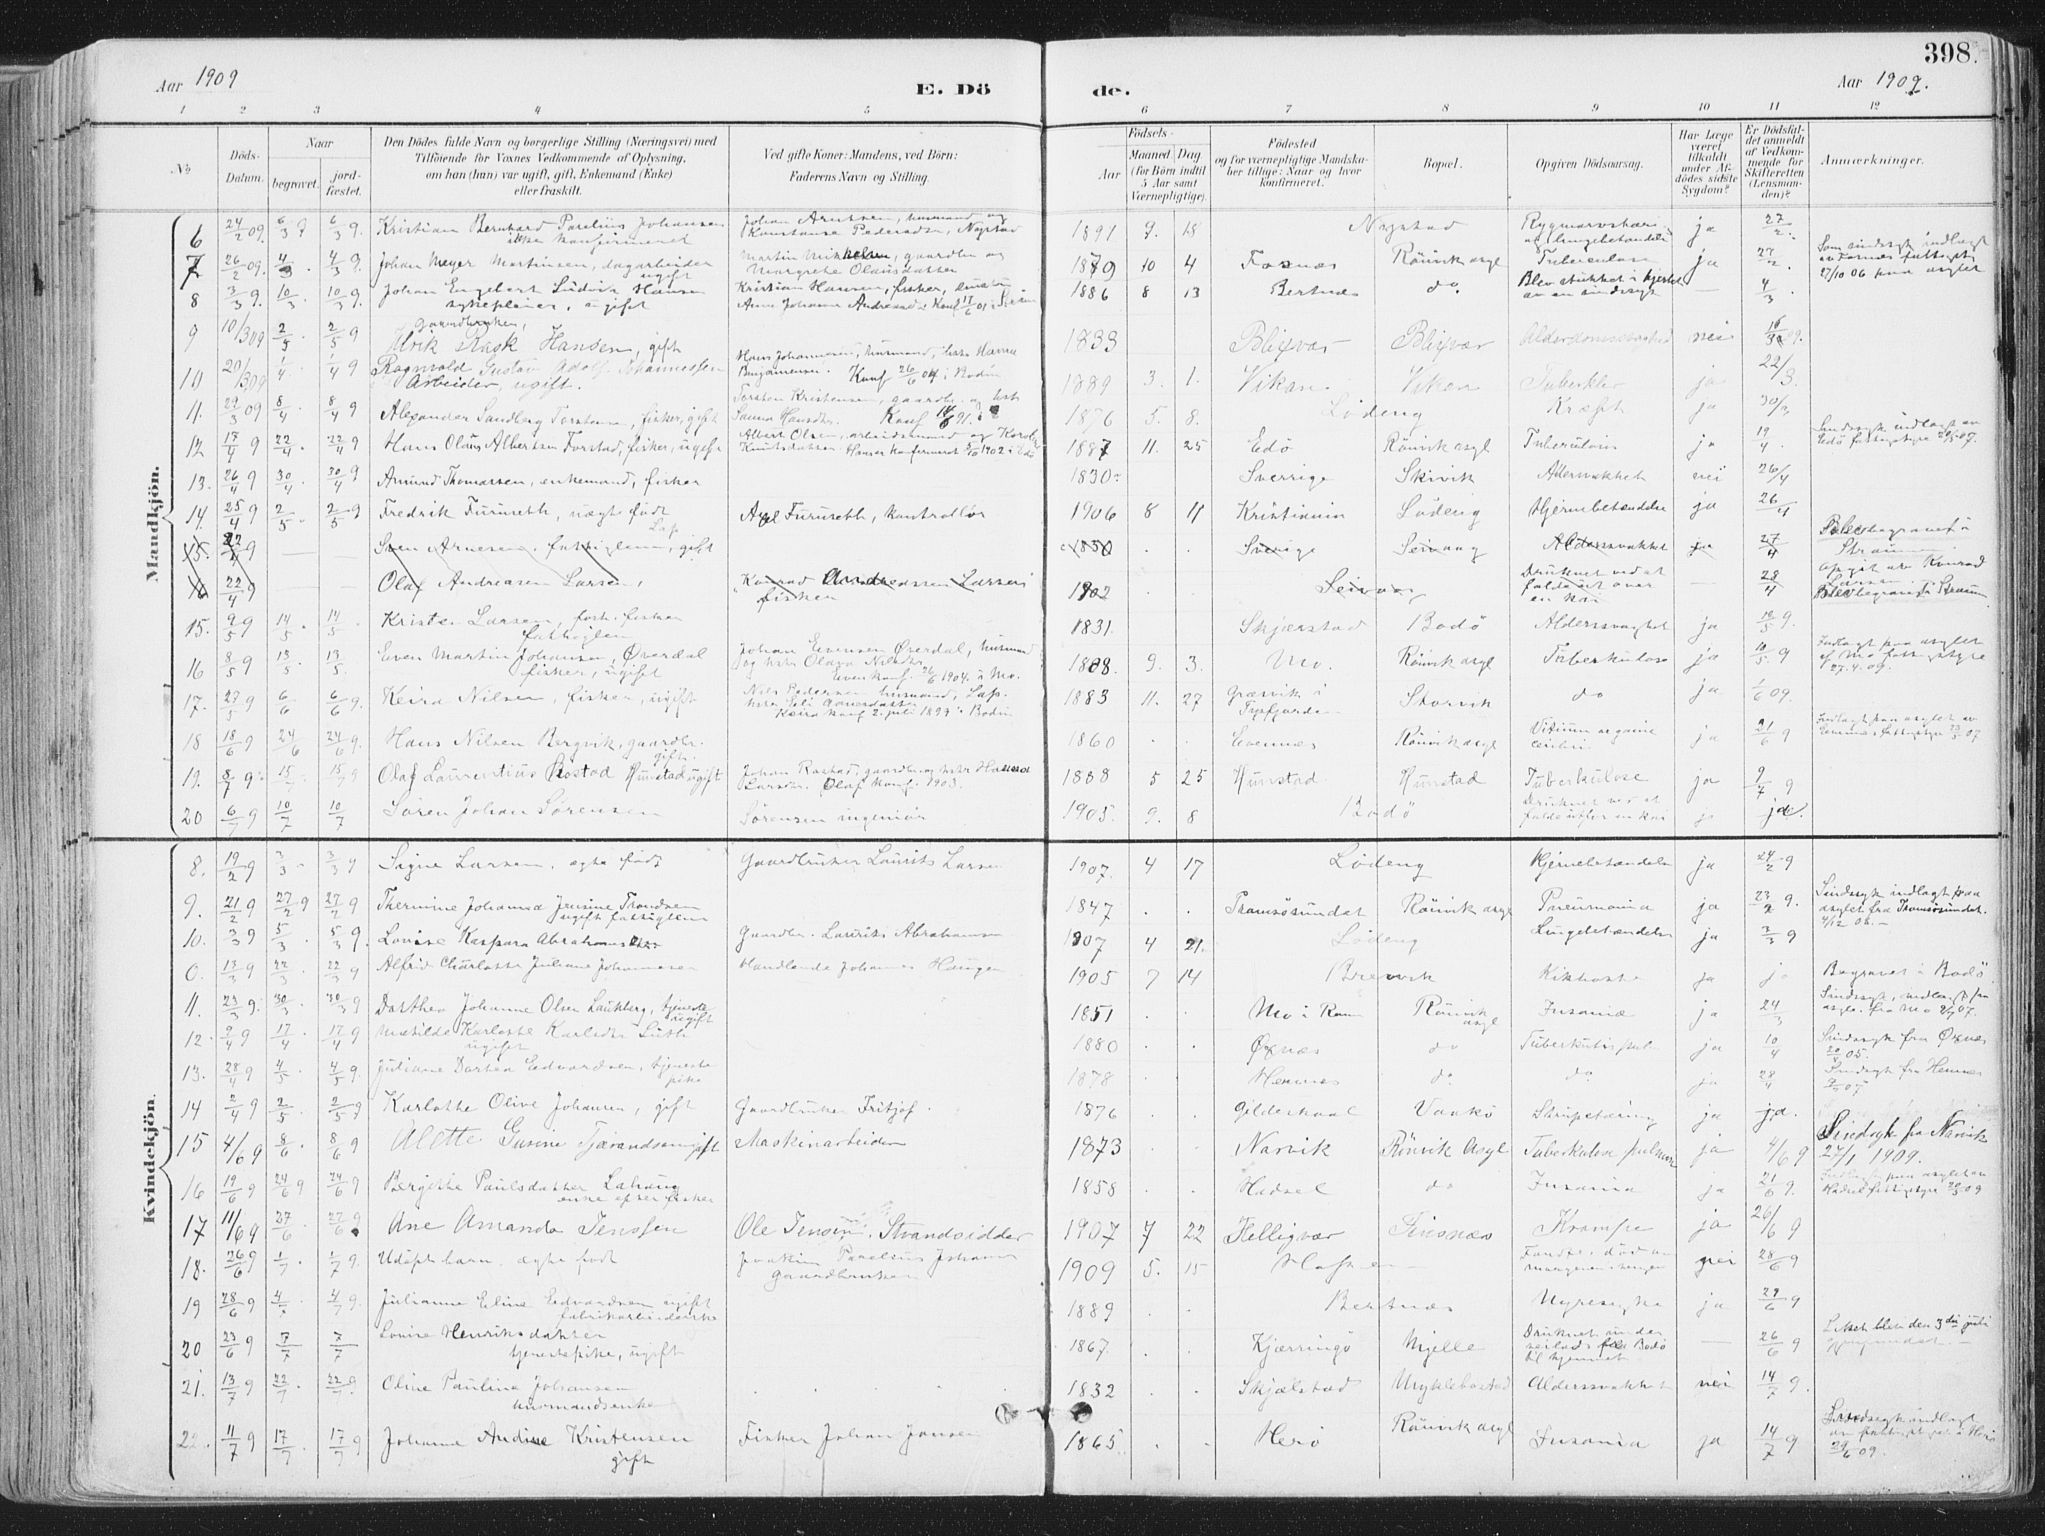 398.
Aar 1909
E. Dö
de.
Aar 1909.
1 2 3 4 5 6 7 8 9 10 11 12
No
Döds-Datum.
Naar
begravet.
jord-fæstet.
Den Dödes fulde Navn og borgerlige Stilling (Næringsvei) med
Tilföiende for Voxnes Vedkommende af Oplysning,
om han (hun) var ugift, gift, Enkemand (Enke)
eller fraskilt.
Ved gifte Koner: Mandens, ved Börn:
Faderens Navn og Stilling.
Födsels-
Aar
Maaned
Dag
(for Börn indtil
5 Aar samt
Værnepligtige).
Födested
og for værnepligtige Mandska-
ber tillige: Naar og hvor
konfirmeret.
Bopæl.
Opgiven Dödsaarsag.
Har Læge
været
tilkaldt
under Af-
dödes sidste
Sygdom?
Er Dödsfal-
det anmeldt
af Vedkom-
mende for
Skifteretten
(Lensman-
den)?
Anmærkninger.
Mandkjön.
6 24/2 09. 6/3 9 6/3 9. Kristian Bernhard Parelius Johansen
ikke konfirmeret
Johan Arntsen, husmand og
Konstanse Pedersdtr, Nystad
1891 9. 18 Nystad ja 27/2.
7 26/2 09. 4/3 . 4/3 9. Johan Meyer Martinsen, dagarbeider
ugift
Martin Mikkelsen, gaardbr og
Margrethe Olausdatter
1879 10 4 Fosnæs Rönvik asyl Tuberculose ja 27/2
Som sindssyk indlagt
av Fosnes fattigst.
27/10 06 paa asylet
8 3/3 9. 10/3 . 10/3 9. Johan Engebert Ludvik Hansen
sykepleier, ugift
Kristian Hansen, fisker,
1886 8 13 Bertnæs do. Blev stukket i hjertet
av en sindssyk — 4/3 .
9 10/3 09 2/5 . 2/5 9 gaardbruker,
Ulrik Rask Hansen, gift
1833 Bligvær Bligvær Alderdomssvaghed nei 16/3 09.
10 20/3 09 1/4 . 1/4 9 Ragnvald Gustav Adolf Johannessen
Arbeider, ugift.
Hans Johannesen, husmand, Hanna
Benjaminsen. Konf 26/6 04 i Bodin
1889 3. 1. Vikan Vikan Tuberkler ja 22/3.
11. 29/3 09 8/4 . 8/4 9 Alexander Sandberg Torstensen, fisker, gift
Torsten Kristensen, gaardbr. og hst
Sanna Hansdtr. Konf
1876 5. 8. Lödeng Kræft ja 30/3
12 17/4 9 22/4 . 22/4 9 Hans Olaus Albertsen Forstad, fisker, ugift
Albert Olsen, arbeidsmand og
Knutsdatter Hanser konfirmeret 5/10 1902 i Edö
1887 11. 25 Edö Rönvik asyl Tuberculosis ja 19/4.
Sindssyk indlagt av
Edö fattigstyre 29/5 07.
13. 26/4 9 30/4 . 30/4 9 Amund Thomassen, enkemand, fisker
1830 Sverrige Skivik Alderssvakhet nei 26/4
14. 25/4 9 2/5 . 2/5 9 Fredrik Furuseth, uægte født
Axel Furuseth, kontrollör
1906 8 11 Kristiania Lödeng Hjernebetændelse ja 26/4
15. 22/4 9 — — Lap
Sven Arnesen, fattiglem, gift
1830 . . Sverige Seivaag Alderssvakhet ja 27/4
Blev begravet i
Straum
22/4 9 — — Olaf Andreasen Larsen,
Konrad Andreassen Larsen
fisker
1902 . . Seivaag Druknet ved at
falde ut over
en kai — 28/4
opgit av Konrad
Larsen.
Blev begravet i Straum
15. 9/5 9 14/5 . 14/5 . Krist. Larsen, forh. fisker
fattiglem
1831. Skjærstad Bodö Alderssvaghet ja 12/5 9.
16 8/5 9 13/5 . 13/5. Even Martin Johansen Øverdal
fisker, ugift
Johan Evensen Øverdal, husmand
og hstr Olava Nilsdtr.
Even konf. 26/6 1904. i Mo.
1888. 9. 3. Mo. Rönvik asyl Tuberkulose ja 10/5 9
Indlagt paa asylet
af Mo fattigstyre
27.4.09.
17. 27/5 9 6/6 6/6 9. Keira Nilsen, fisker, ugift
Nils Pedersen husmand, Lap.
Keira konf 2. juli 1899 i Bodin
1883 11. 27 Græsvik i
Tysfjorden Storvik do ja 1/6 09.
18 18/6 9 24/6 24/6 9. Hans Nilsen Bergvik, gaardbr.
gift.
1860 . . Evennes Rönvik asyl Vitium organic
cerebri ja 21/6 9
Indlagt paa asylet av
Evennes fattigstyre 23/5 07
19. 8/7 9. 15/7 15/7 9 Olaf Laurentius Røstad Hunstad ugift
Johan Røstad, gaardbr og hstr Hanna
Larsdtr. Olaf konf. 1903.
1888 5 25 Hunstad. Hunstad Tuberkulose ja 9/7 9
20 6/7 9 10/7 10/7 Sören Johan Sörensen
Sörensen ingeniør
1905. 9. 8 Bodö Druknet ved at
falde utfor en kai ja.
Kvindekjön.
8. 19/2 9 3/3 - 3/3 9 Signe Larsen, ægte født
Gaardbruker Laurits Larsen
1907. 4 17 Lödeng Hjernebetændelse ja 24/2 9
9. 21/2 9 27/2 9 27/2 9 Thermine Johanna Jensine Trondsen
ugift fattiglem
1847 . . Tromsösundet Rönvik asyl Pneumonia ja 23/2 9.
Sindssyk indlagt paa
asylet fra Tromsösundet.
4/12 06.-
10. 3/3 9 5/3 . 5/3 9. Lovise Kaspara Abrahams
Gaardbr. Laurits Abrahamsen
1907 4 21. Lödeng Lungebetændelse ja 3/3 9
0. 13/3 9 22/3 . 22/3 9 Alfrid Charlotte Juliane Johannesen
Handlende Johannes Haugen
1905 7 14 Brevik Kikhoste ja j
Begravet i Bodö
11. 23/3 9. 30/3 . 30/3 9 Dorthea Johanne Olsen Laukberg, tjeneste
ugift
1851 . Mo i Ran Rönvik
asyl Insania ja 24/3
Sindssyk, indlagt fra
asyl. fra Mo 07.
12. 2/4 9 17/4 . 17/4 9 Matilde Karlotte
ugift
1880 . . Øxnæs do Tuberkulosis pulm ja 10/4
Sindssyk fra Øxnæs
20/ 05.
13. 28/4 9 4/5 . 4/5 9. Juliane Dortea Edvardsen, tjeneste
pike
1878 . . Hemnes do. do. ja 28/4
Sindssyk fra Hemnes
07
14 2/4 9 2/5 . 2/5 9 Karlotte Olive Johansen, gift
Gaardbruker Fritjof.
1876 . . Gildeskaal Vaakö Strupetæring ja ja.
15 4/6 9 8/6 . 8/6 9 Alette Gurine Tjærandsen gift
Maskinarbeider
1873 . . Narvik Rönvik Asyl Tuberkulose pulmon ja 4/6 9
Sindssyk fra Narvik
27/1 1909.
16 19/6 9 24/6 9 24/6 9. Bergitte Paulsdatter Lahaug
enke efter fisker
1858 . . Hadsel do Insania ja 21/6 9.
Hadsel fattigstyre 20/5 09
17 11/6 9 27/6 . 27/6 9 Ane Amanda Jenssen
Ole Jensen, Strandsidder
1907 7 22 Helligvær Tinsnæs Krampe ja 26/6 9
18. 26/6 9 1/7 . 1/7 9. Udøpt barn, ægte født
Joakim Parelius Johansen
gaardbruker
1909 5. 15 Hopen Fandtes død om
morgenen i sengen nei 28/6 9
19 28/6 9 4/7 . 4/7 9. Julianne Eline Edvardsen ugift
fabrikarbeiderske
1889 . . Bertnæs Nyresyke ja 29/6 9
20 23/6 9 7/7 7/7 Lovise Henriksdatter
tjenestepike, ugift
1867. . . Kjærringö Mjelle Druknet under
seilads fra Bodö
til hjemmet — 26/6 9
Liket blev den 3die juli
21. 13/7 9 22/7 . 22/7 9. Oline Paulina Johansen
husmandsenke
1832 . . Skjælstad Myklebostad Alderssvakhet nei 14/7 9.
22. 11/7 9 17/7 . 17/7 9 Johanne Andine Kristensen
gift
Fisker Johan Jansen
1865. . . Herö Rönvik asyl Insania ja 14/7 9
Sindssyk indlagt
09.